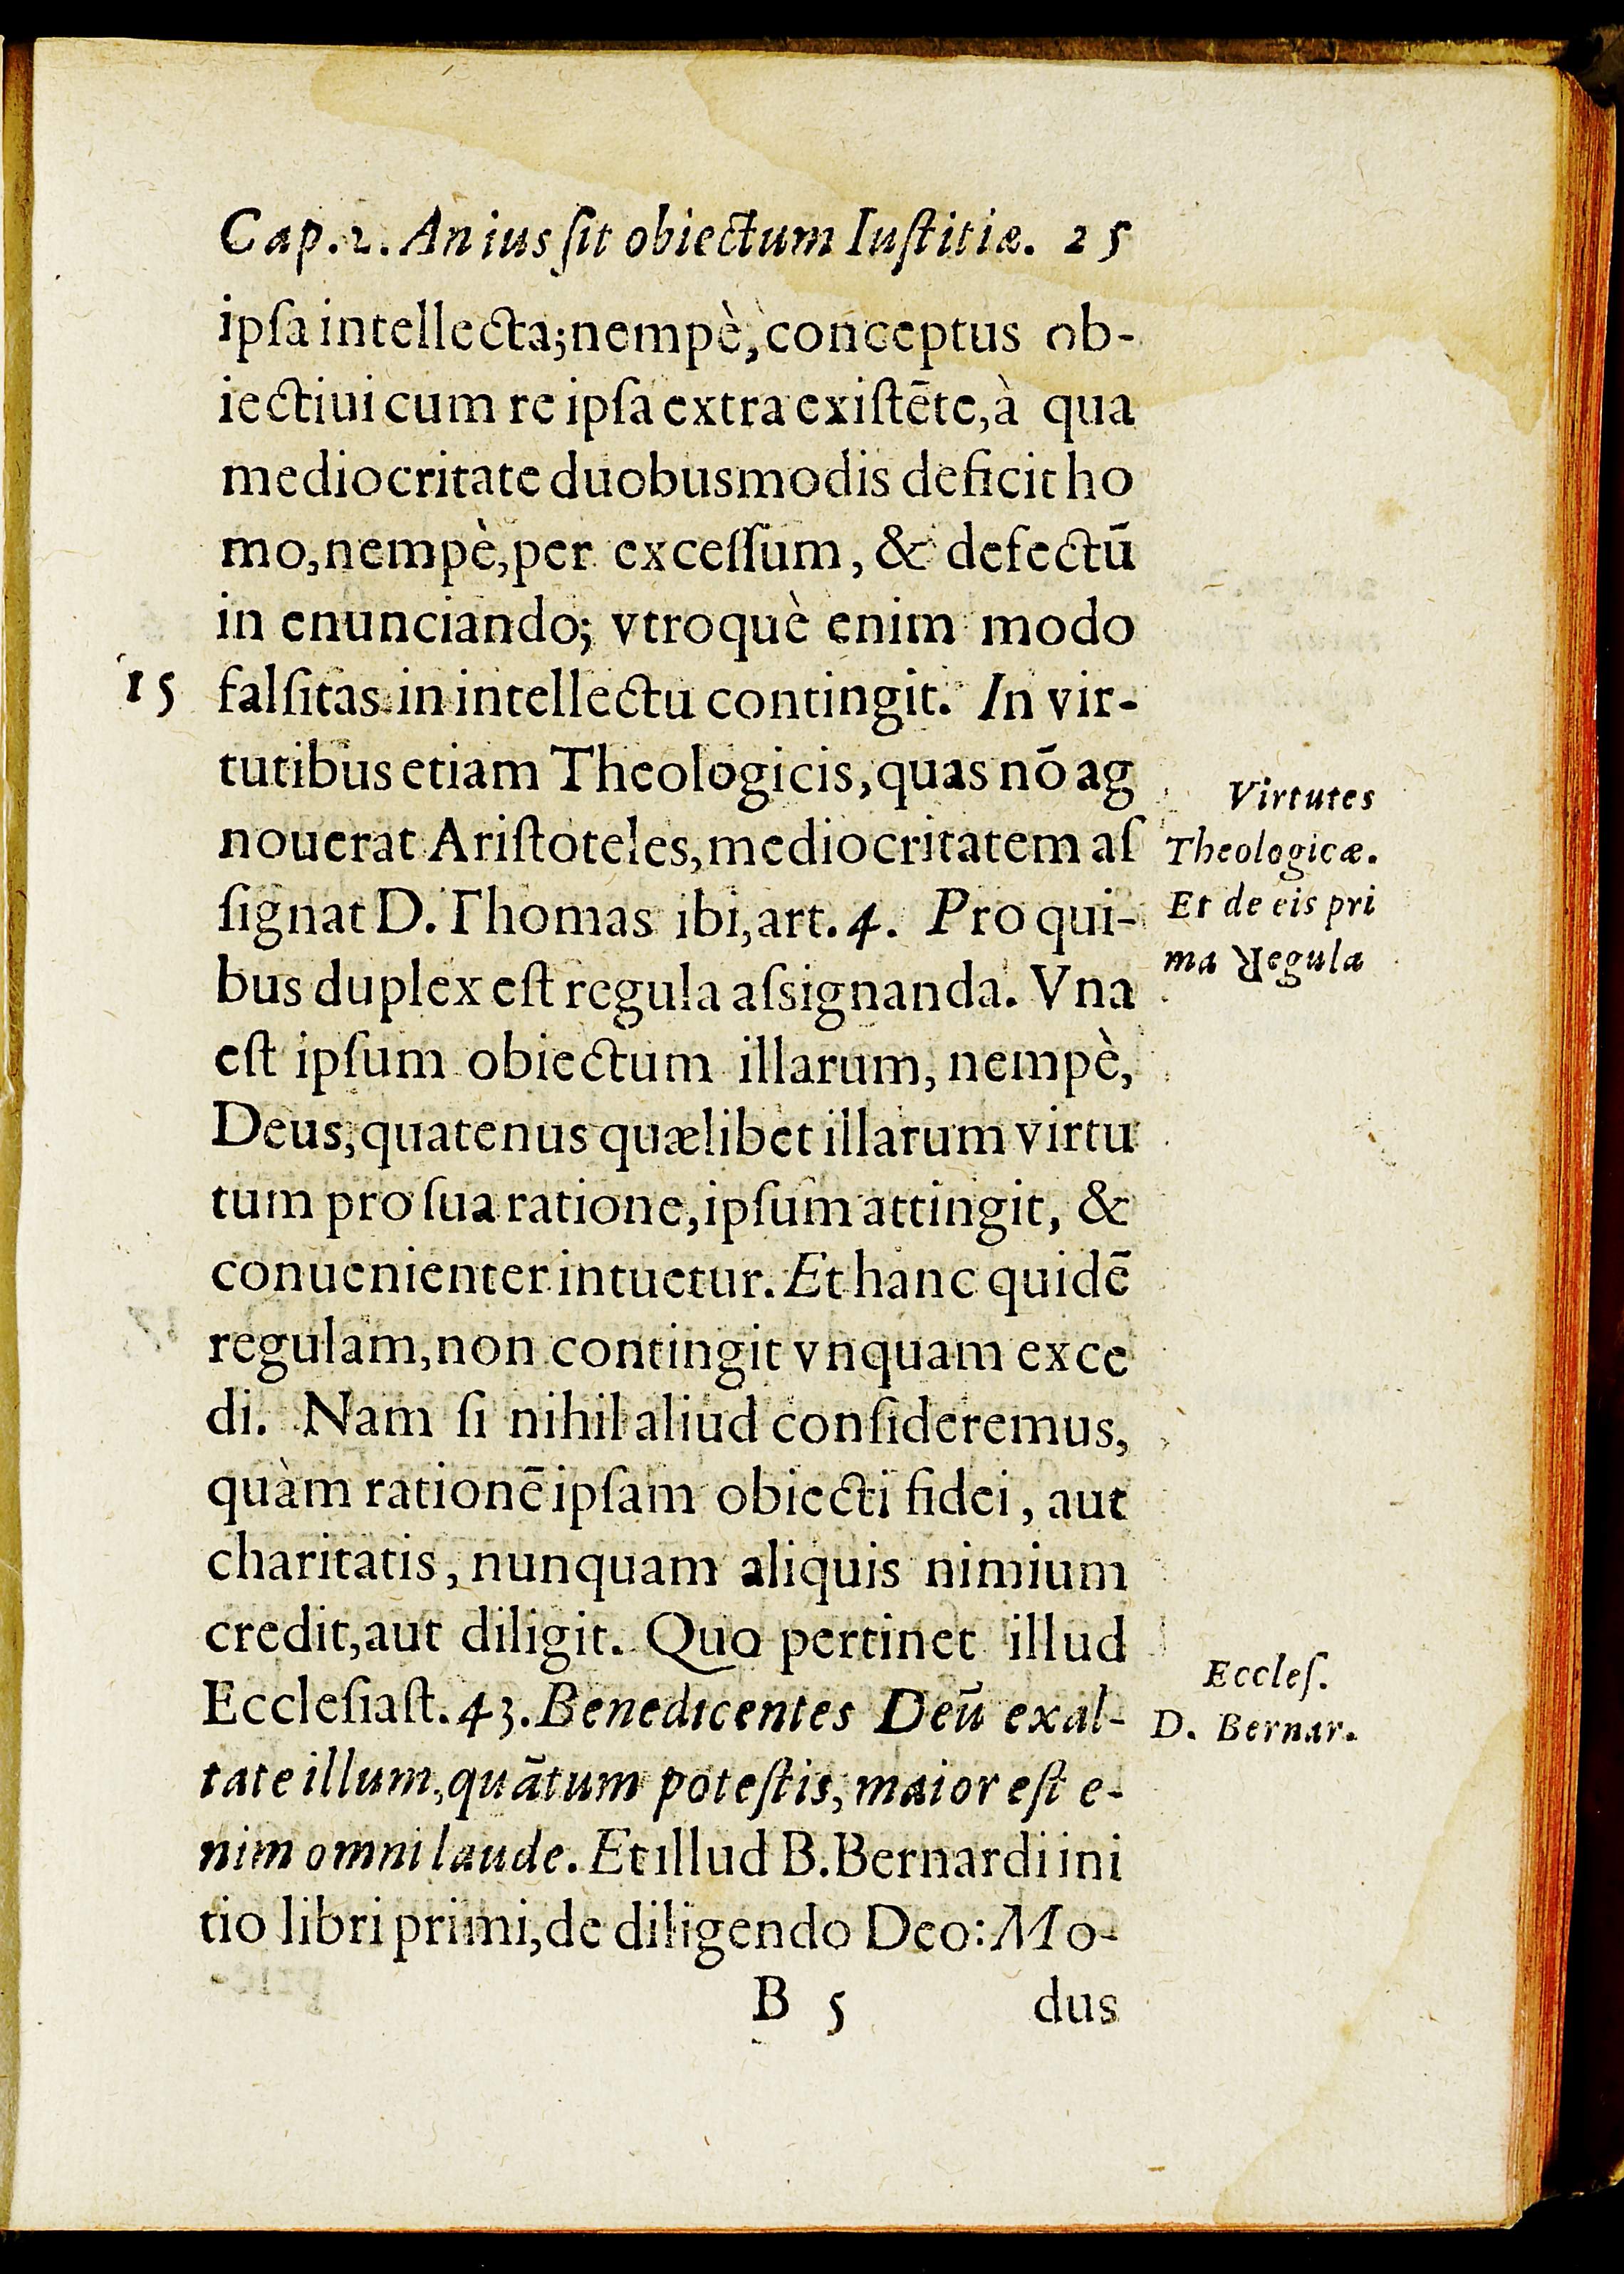 Cap. 2. An ius ſit obiectum Iuſtitiæ. 25
ipſa intellecta; nempè, conceptus ob-
iectiui cum re ipſa extra exiſtēte, à qua
mediocritate duobus modis deficit ho
mo, nempè, per exceſſum, & defectū
in enunciando; vtroquè enim modo
15 falſitas in intellectu contingit. In vir-
tutibus etiam Theologicis, quas nō ag
nouerat Ariſtoteles, mediocritatem aſ
ſignat D. Thomas ibi, art. 4. Pro qui-
bus duplex eſt regula aſsignanda. Vna
eſt ipſum obiectum illarum, nempè,
Deus, quatenus quælibet illarum virtu
tum pro ſua ratione, ipſum attingit, &
conuenienter intuetur. Et hanc quidē
regulam, non contingit vnquam exce
di. Nam ſi nihil aliud conſideremus,
quàm rationē ipſam obiecti fidei, aut
charitatis, nunquam aliquis nimium
credit, aut diligit. Quo pertinet illud
Eccleſiaſt. 43. Benedicentes Deū exal-
tate illum, quātum poteſtis, maior eſt e-
nim omni laude. Et illud B. Bernardi ini
tio libri primi, de diligendo Deo: Mo-
B 5 dus
Virtutes
Theologicæ.
Et de eis pri
ma Regula
Eccleſ.
D. Bernar.